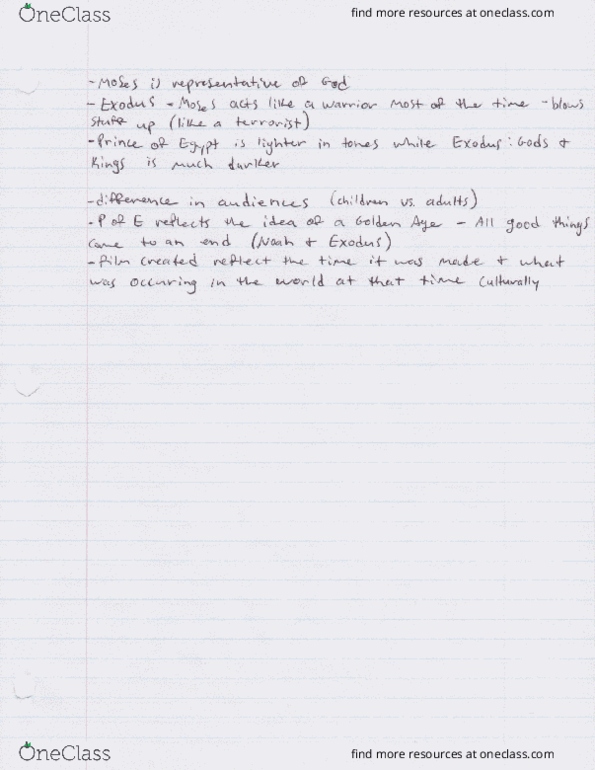 OneClass
find more resources at oneclass.com
- Moses is representative of God
- Exodus - Moses acts like a warrior most of the time - blows
stuff up (like a terrorist)
- Prince of Egypt is lighter in tones while Exodus: Gods &
Kings is much darker
- difference in audiences (children vs. adults)
- P of E reflects the idea of a Golden Age - All good things
come to an end (Noah & Exodus)
- film created reflect the time it was made & what
was occuring in the world at that time culturally
OneClass
find more resources at oneclass.com